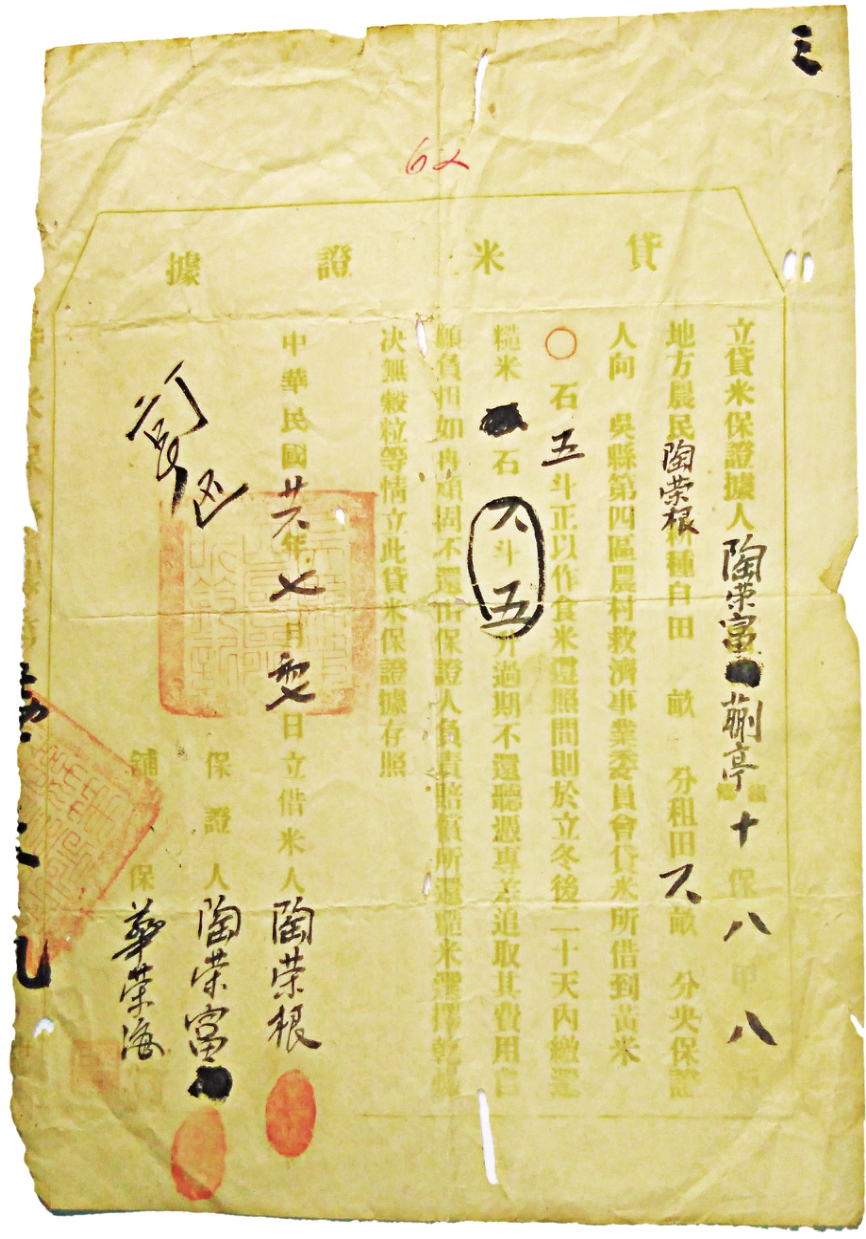 三
62
貸米證據
立貸米保證據人陶荣富蒯亭鎮鄉十保八甲八
地方農民陶荣根種自田 畝 分租田 畝 分央保證
人向 吳縣第四區農村救濟事業委員會貸米所借到黃米
〇石五斗正以作食米還照間則於立冬後二十天內繳還
糙米 石 斗五升過期不還聽憑專差追取其費用
願負担如再頑固不還由保證人負責賠償所還糙米
决無穀粒等情立此貸米保證據存照
中華民國廿六年七月 日立借米人陶荣根
保證人陶荣富
舖保華荣海